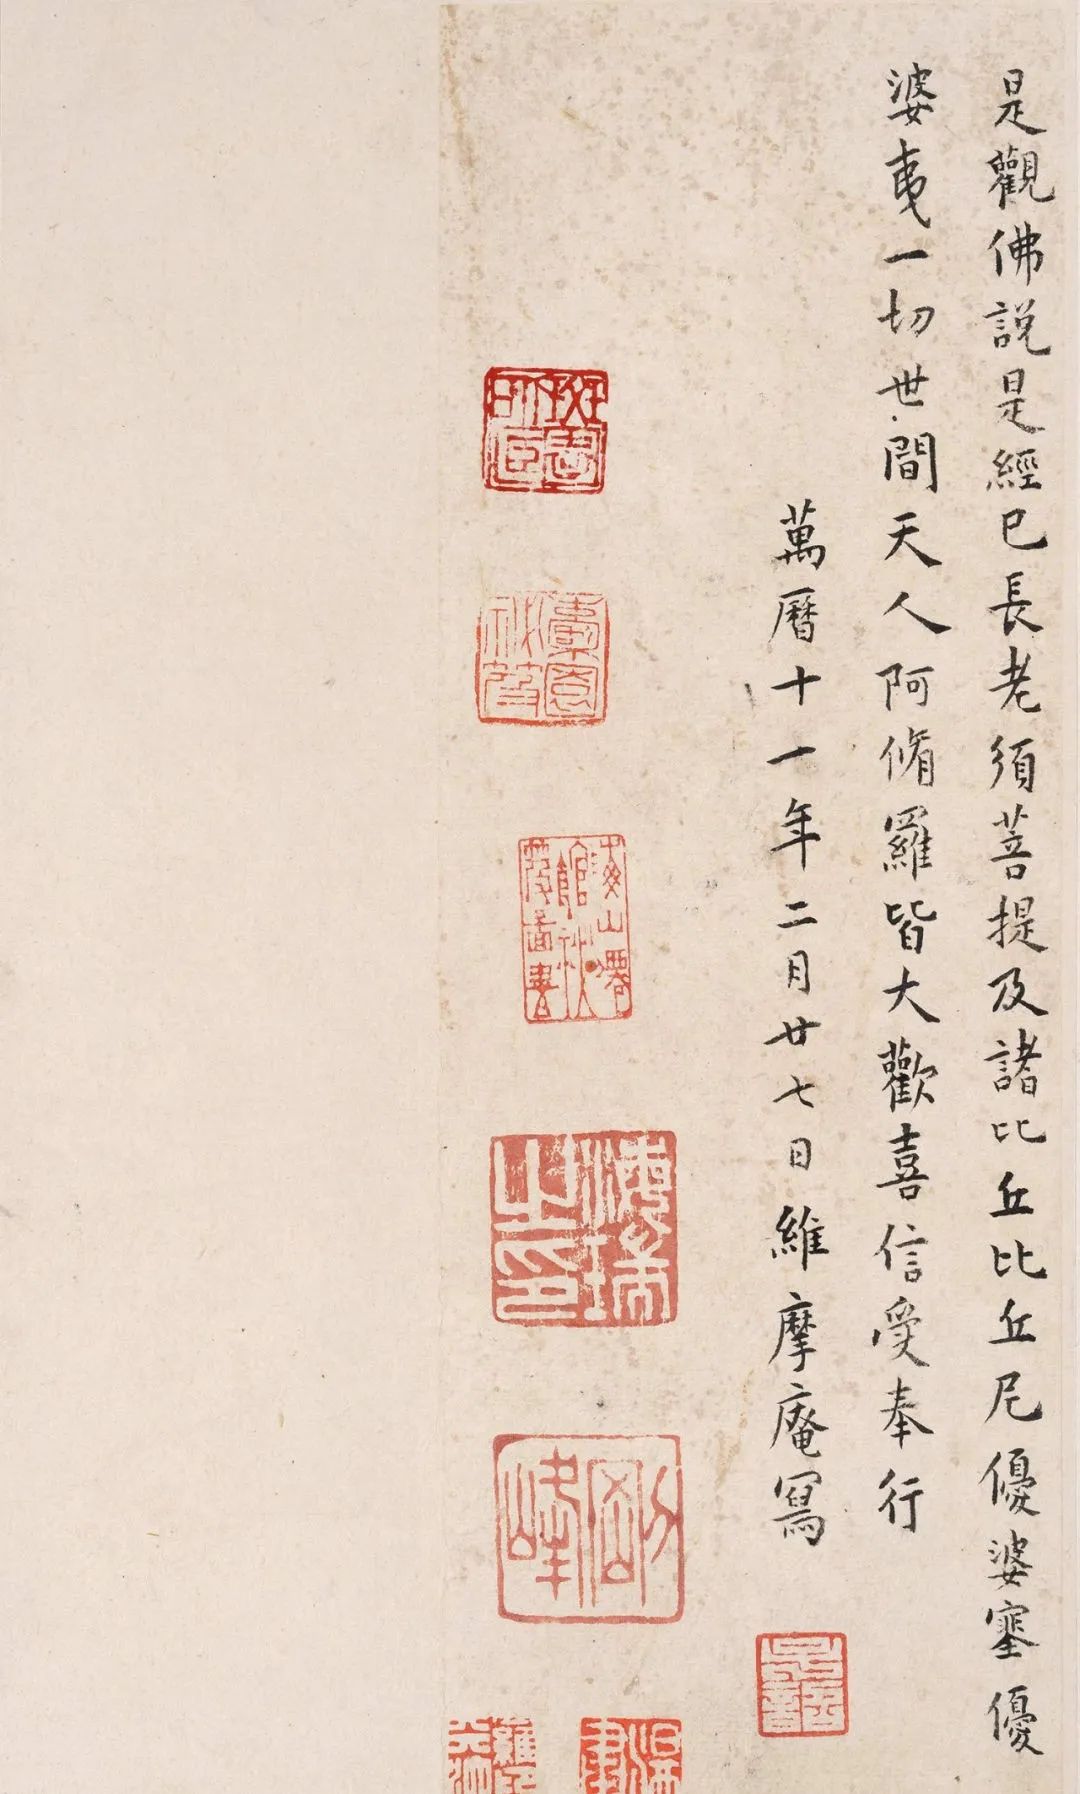 是觀佛說是經已長老須菩提及諸比丘比丘尼優婆塞優
婆夷一切世間天人阿脩羅皆大歡喜信受奉行
萬曆十一年二月廿七日維摩庵寫